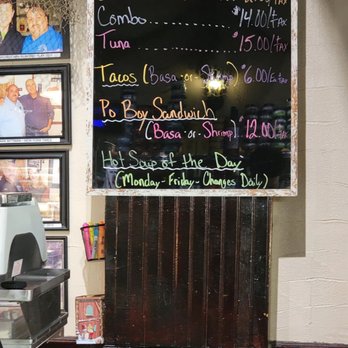 Combo............... $14.00/+TAX
Tuna............... $15.00/+TAX
Tacos (Basa-or-Shrimp) $6.00/Ea+TAX
Po Boy Sandwich
(Basa-or-Shrimp) $12.00/+TAX
Hot Soup of the Day
(Monday-Friday-Changes Daily)